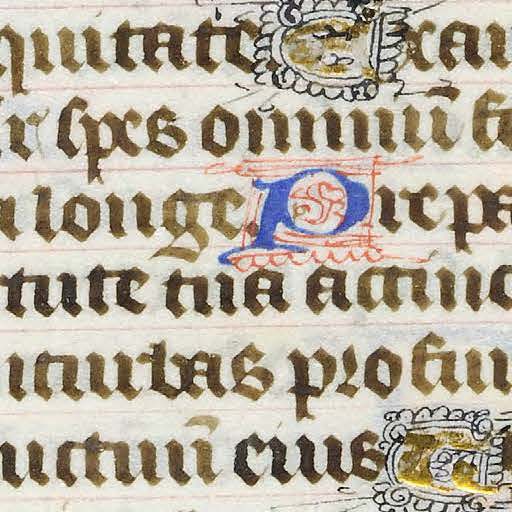 quitate Exau
r spes omniū fi
longe Prepa
tute tua accinc
conturbas profun
luctuū eius